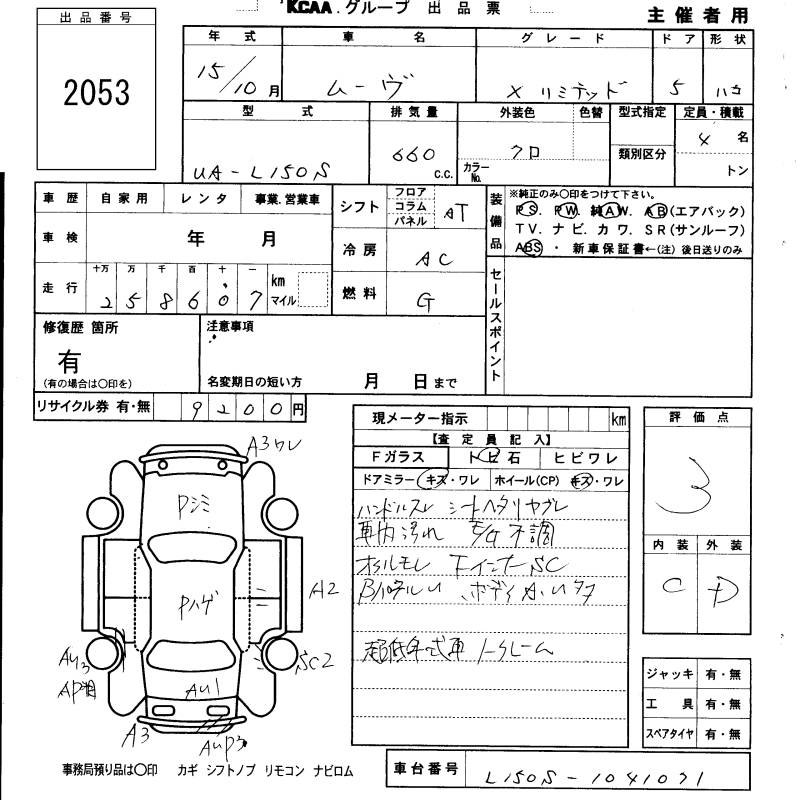 KCAA.グループ 出品票
主催者用
出品番号
2053
年式 車名 グレード ドア 形状
15/10月 ムーヴ X リミテッド 5 ハコ
型式 排気量 外装色 色替 型式指定 定員・積載
UA-L150S 660 c.c. クロ カラーNo. 類別区分 4名
トン
車歴 自家用 レンタ 事業.営業車
車検 年 月
走行 十万 万 千 百 十 一 km マイル
2 5 8 6 0 7
シフト フロア コラム パネル AT
冷房 AC
燃料 G
装備品
※純正のみ○印をつけて下さい。
PS. PW. 純AW. AB(エアバック)
TV. ナビ. カワ. SR(サンルーフ)
ABS ・ 新車保証書←(注) 後日送りのみ
セールスポイント
修復歴 箇所
有
(有の場合は○印を)
注意事項
名変期日の短い方 月 日まで
リサイクル券 有・無 9200円
現メーター指示 km
【査定員記入】
Fガラス トビ石 ヒビワレ
ドアミラー キズ・ワレ ホイール(CP) キズ・ワレ
ハンドルスレ シートヘタリヤブレ
車内汚れ E/G不調
オイルモレ FインナーSC
超低年式車 ノークレーム
評価点
3
内装 外装
C D
ジャッキ 有・無
工具 有・無
スペアタイヤ 有・無
A3ワレ
Pシミ
Pハゲ
A2
AU3
SC2
AU1
A3
AUP3
事務局預り品は○印 カギ シフトノブ リモコン ナビロム
車台番号 L150S-1041071